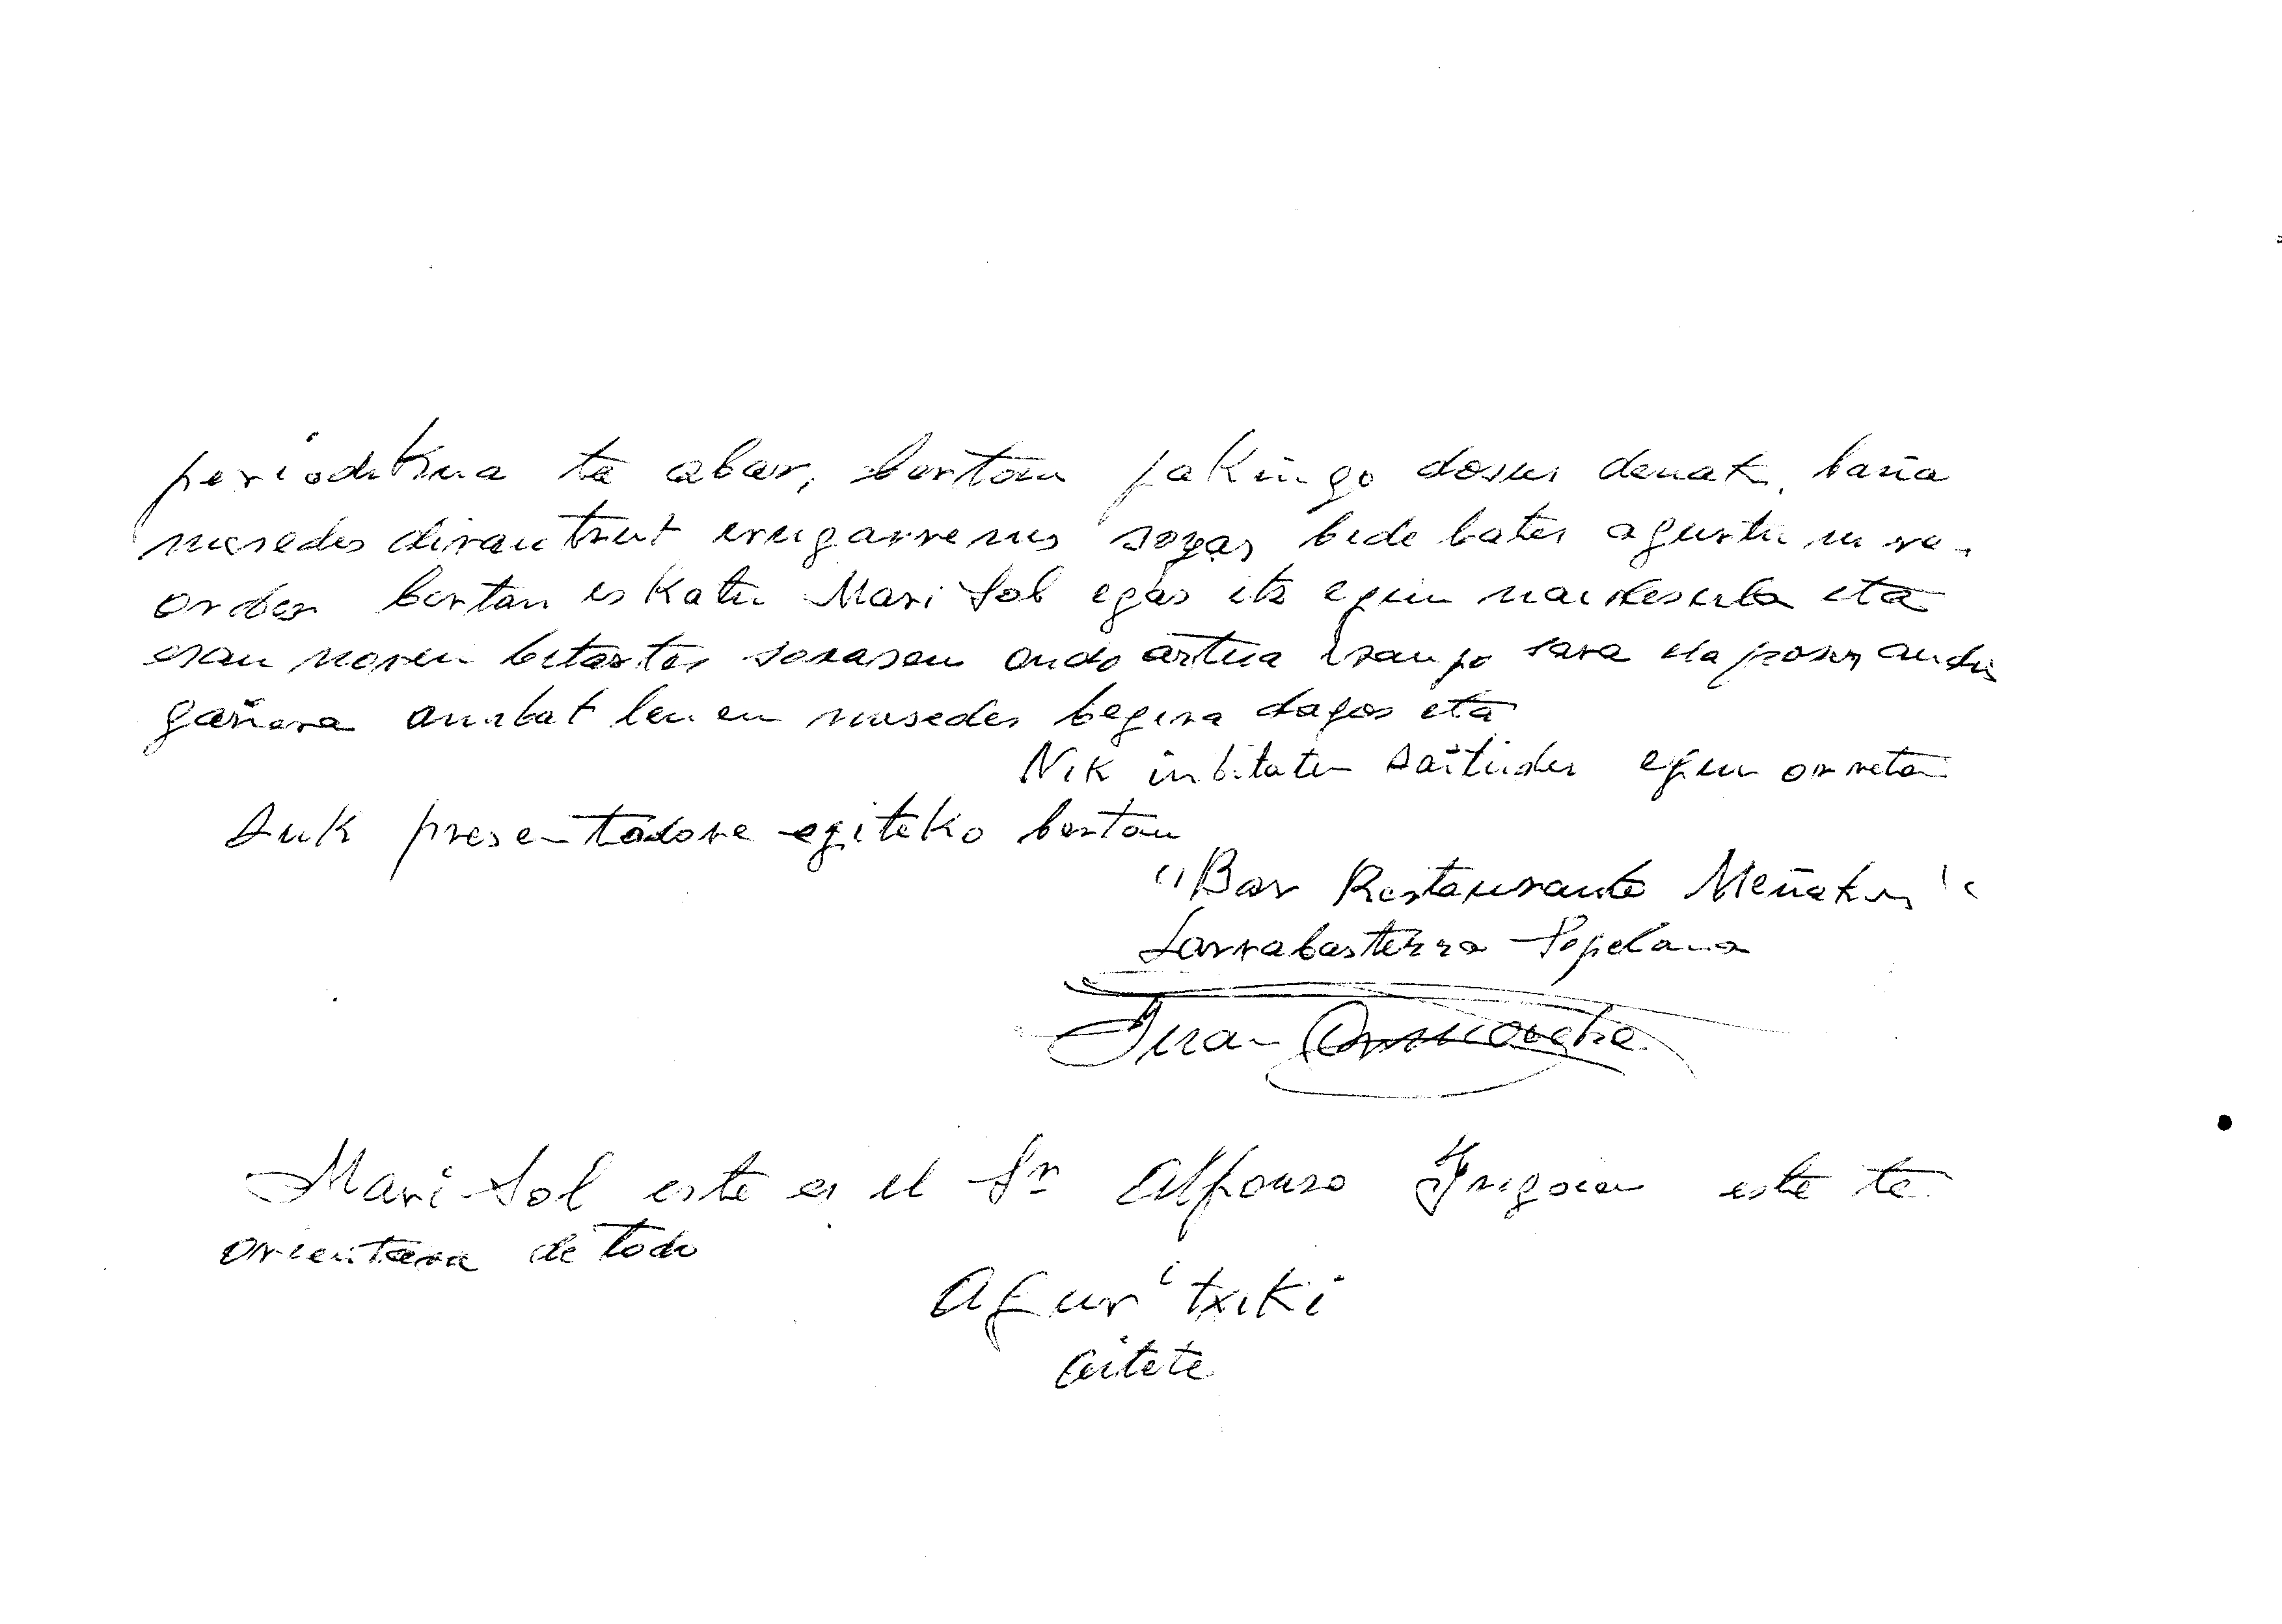 periodikua ta abar, bertan jakingo dosus denak, baña
musedes dirautzut irugarrenus soyas bide bates agurtu
order bertan eskatu Mari Sol egas itz egin nai desula eta
esan noren bitartes soasen ondo artua isango sara eta posas andis
gañera aurbat lenen musedes begira dagos eta
Nik inbitatu saitudes egun orretan
suk presentadore egiteko bertan
"Bar Restaurante Meñakas"
Larrabasterra Sopelana
Juan
Mari Sol este es el Sr Alfonso Irigoien este te
orientara de todo
Agur txiki
aitite